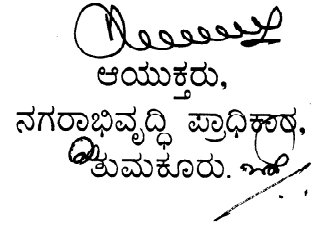 ಆಯುಕ್ತರು,
ನಗರಾಭಿವೃದ್ಧಿ ಪ್ರಾಧಿಕಾರ,
ತುಮಕೂರು.